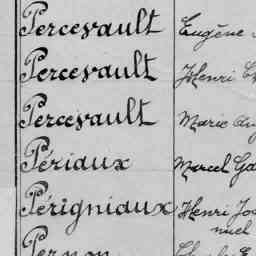 Percevault Eugène
Percevault Henri
Percevault Marie
Périaux Marcel
Périgniaux Henri
Pernon